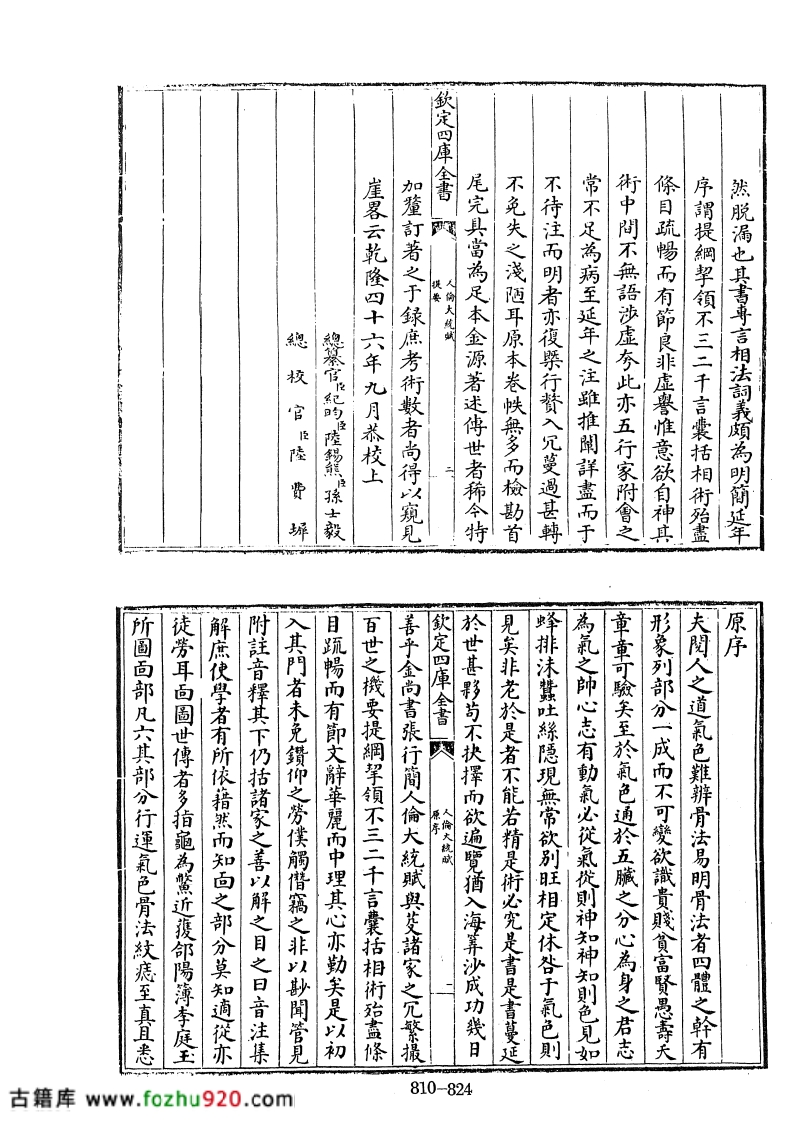 然脱漏也其書専言相法詞義頗為明簡延年
序謂提綱挈領不三二千言囊括相術殆盡
條目疏暢而有節良非虛譽惟意欲自神其
術中間不無語涉虛夸此亦五行家附會之
常不足為病至延年之注雖推闡詳盡而于
不待注而明者亦復槩行贅入冗蔓過甚轉
不免失之淺陋耳原本卷帙無多而檢勘首
尾完具當為足本金源著述傳世者稀今特
欽定四庫全書
人倫大統賦
提要
二
加釐訂著之于録庶考術數者尚得以窺見
崖畧云乾隆四十六年九月恭校上
總纂官臣紀昀臣陸錫熊臣孫士毅
總校官臣陸費墀
原序
夫閱人之道氣色難辨骨法易明骨法者四體之幹有
形象列部分一成而不可變欲識貴賤貧富賢愚壽夭
章章可驗矣至於氣色通於五臟之分心為身之君志
為氣之帥心志有動氣必從氣從則神知神知則色見如
蜂排沫蠶吐絲隱現無常欲別旺相定休咎于氣色則
見矣非老於是者不能若精是術必究是書是書蔓延
於世甚夥茍不抉擇而欲遍覽猶入海筭沙成功幾日
欽定四庫全書
人倫大統賦
原序
二
善乎金尚書張行簡人倫大統賦與芟諸家之冗繁撮
百世之機要提綱挈領不三二千言囊括相術殆盡條
目疏暢而有節文辭華麗而中理其心亦勤矣是以初
入其門者未免鑽仰之勞僕觸僭竊之非以尠聞管見
附註音釋其下仍括諸家之善以解之目之曰音注集
解庶使學者有所依藉然而知面之部分莫知適從亦
徒勞耳面圖世傳者多指龜為鱉近獲郃陽簿李庭玉
所圖面部凡六其部分行運氣色骨法紋痣至真且悉
810-824
古籍库 www.fozhu920.com